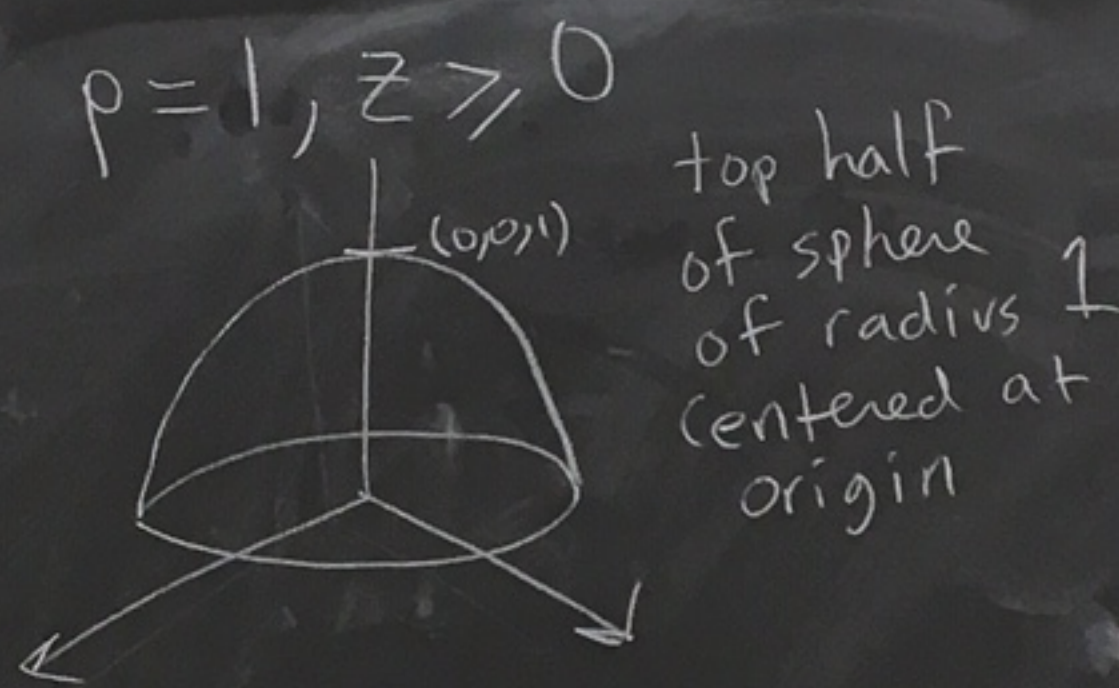 ρ = 1, z ≥ 0
(0,0,1)
top half
of sphere
of radius 1
centered at
origin